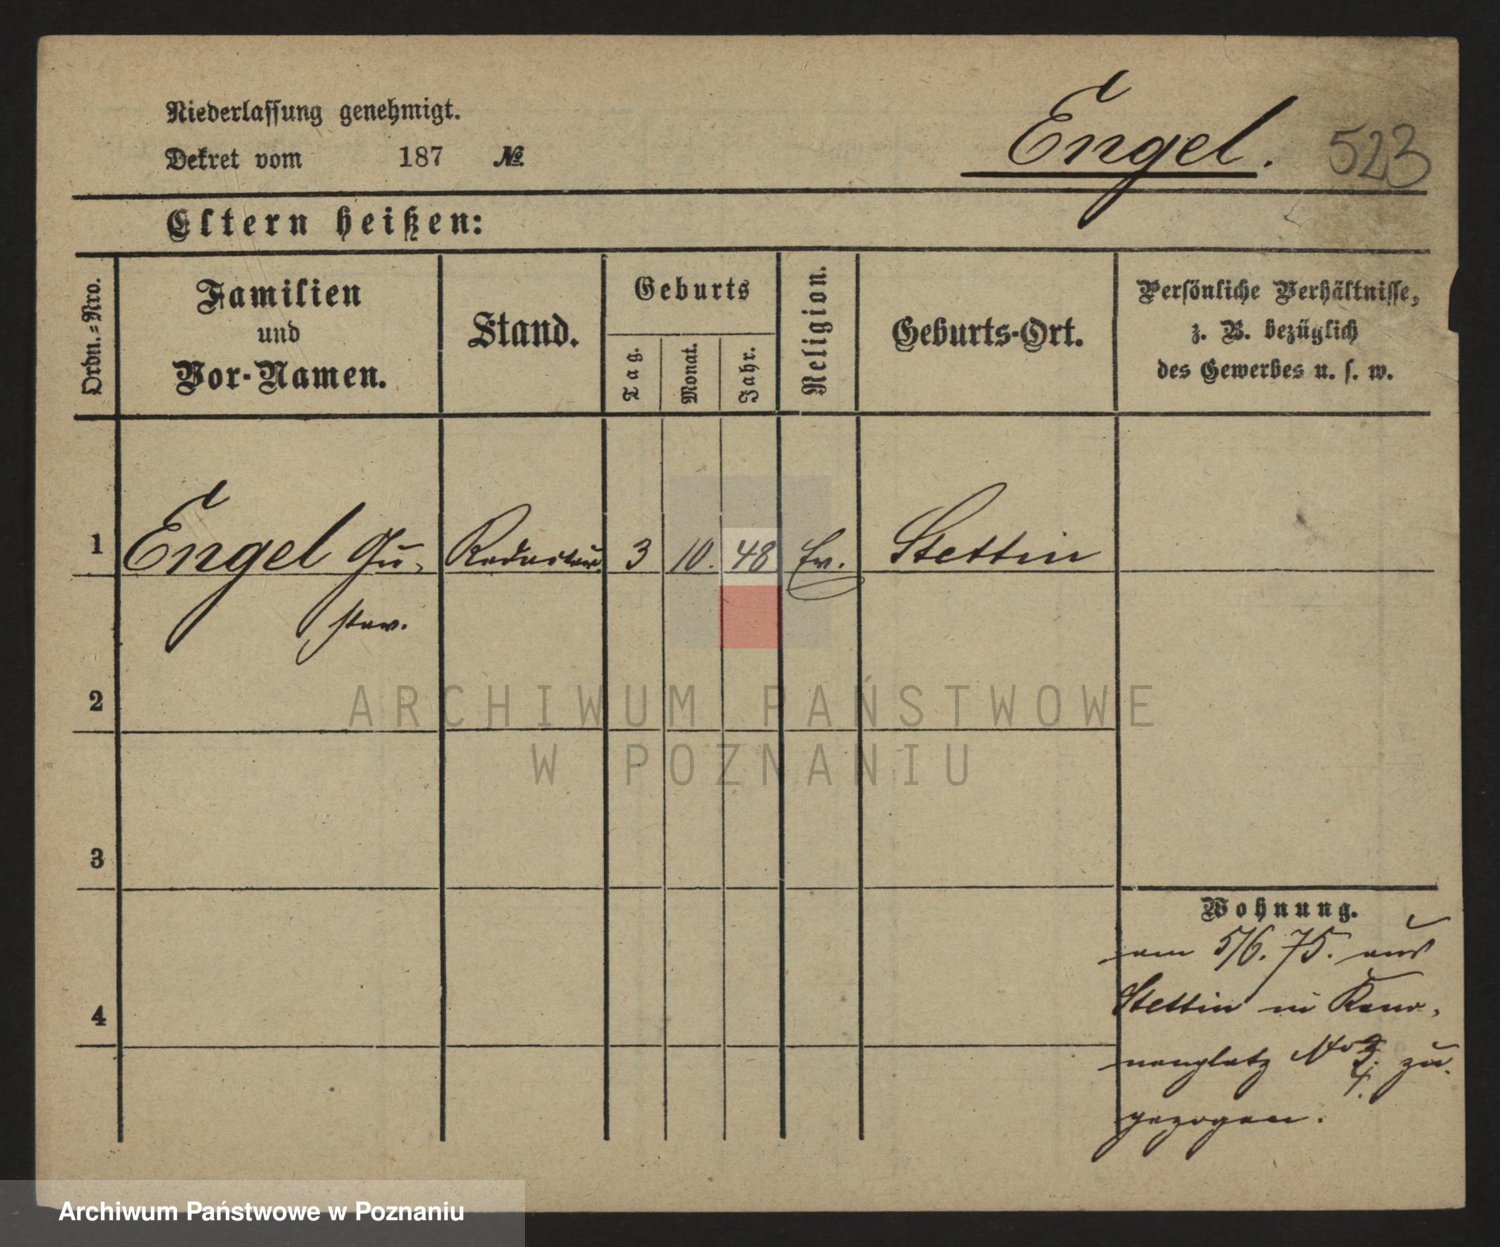 Niederlassung genehmigt.
Dekret vom 187 №
Engel.
523
Eltern heißen:
Ordn.-Nro.
Familien
und
Vor-Namen.
Stand.
Geburts
Tag.
Monat.
Jahr.
Religion.
Geburts-Ort.
Persönliche Verhältnisse,
z. B. bezüglich
des Gewerbes u. s. w.
1 Engel Gu- Redacteur 3 10. 48 Ev. Stettin
stav.
2
ARCHIWUM PAŃSTWOWE
W POZNANIU
3
Wohnung.
am 5/6. 75. aus
Stettin in Kano-
4
nenplatz No zu-
gezogen.
Archiwum Państwowe w Poznaniu